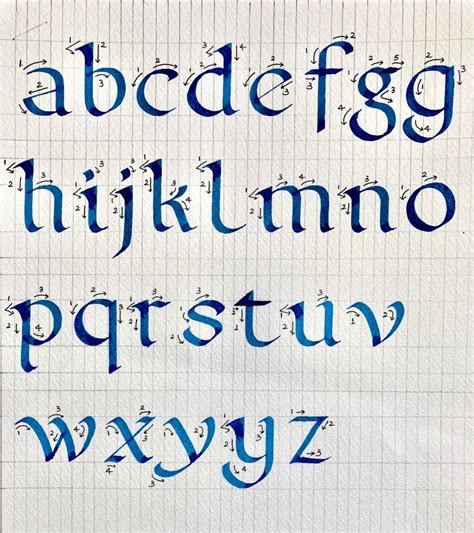 abcdefgg
hijklmno
pqrstuv
wxyyz